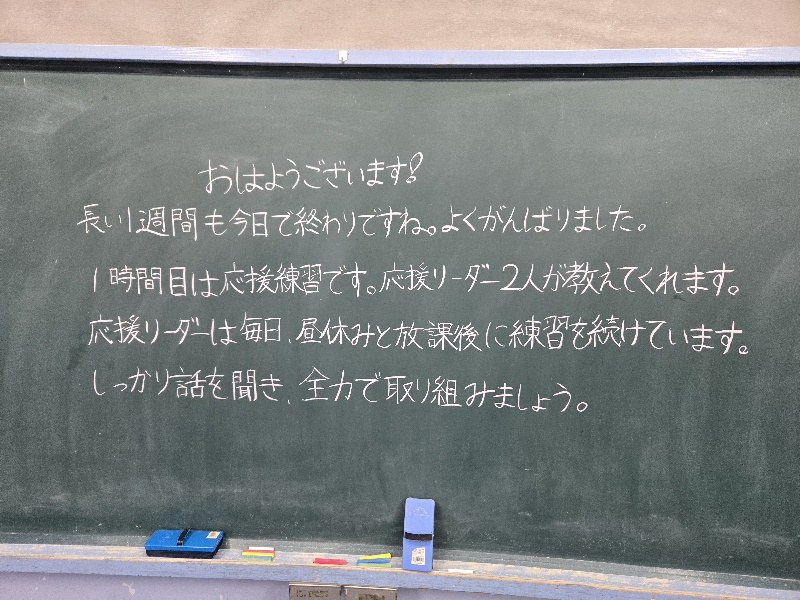 おはようございます!
長い1週間も今日で終わりですね。よくがんばりました。
1時間目は応援練習です。応援リーダー2人が教えてくれます。
応援リーダーは毎日、昼休みと放課後に練習を続けています。
しっかり話を聞き、全力で取り組みましょう。